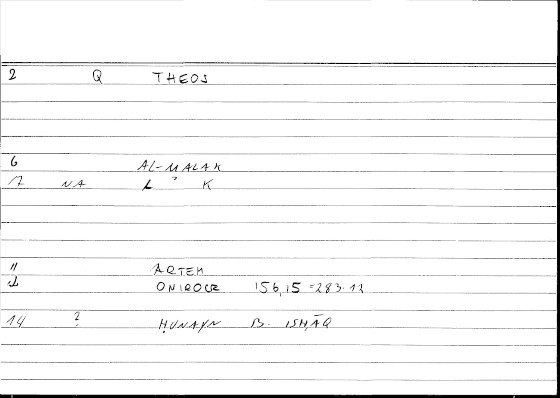 2 Q THEOS
6 AL-MALAK
NA L K
11 ARTEM
ONIROCR 156,15 = 283.12
14 ? ḤUNAYN B. ISḤĀQ